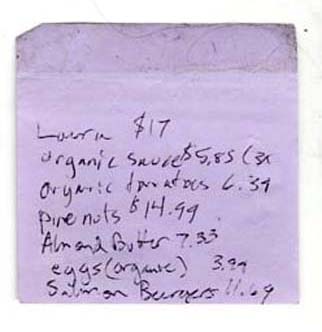 Laura $17
organic sauce $5.85 (3x
organic tomatoes 6.39
pine nuts $14.99
Almond Butter 7.33
eggs (organic) 3.99
Salmon Burgers 11.69